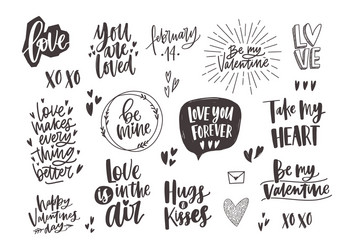 love
you
are
loved
february
14
Be my
Valentine
LOVE
XO XO
love
makes
every
thing
better
be
mine
LOVE YOU
FOREVER
Take my
HEART
happy
Valentine's
day
Love
is in the
air
Hugs
&
Kisses
Be my
Valentine
XO XO